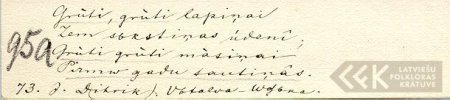 Grūti, grūti lapiņai
Zem sūkstiņas ūdenī;
95a
Grūti grūti māsiņai
Pirmu gadu tautiņās.
73. J. Ditrik), Vatalva-Wējava.
LATVIEŠU
FOLKLORAS
KRĀTUVE